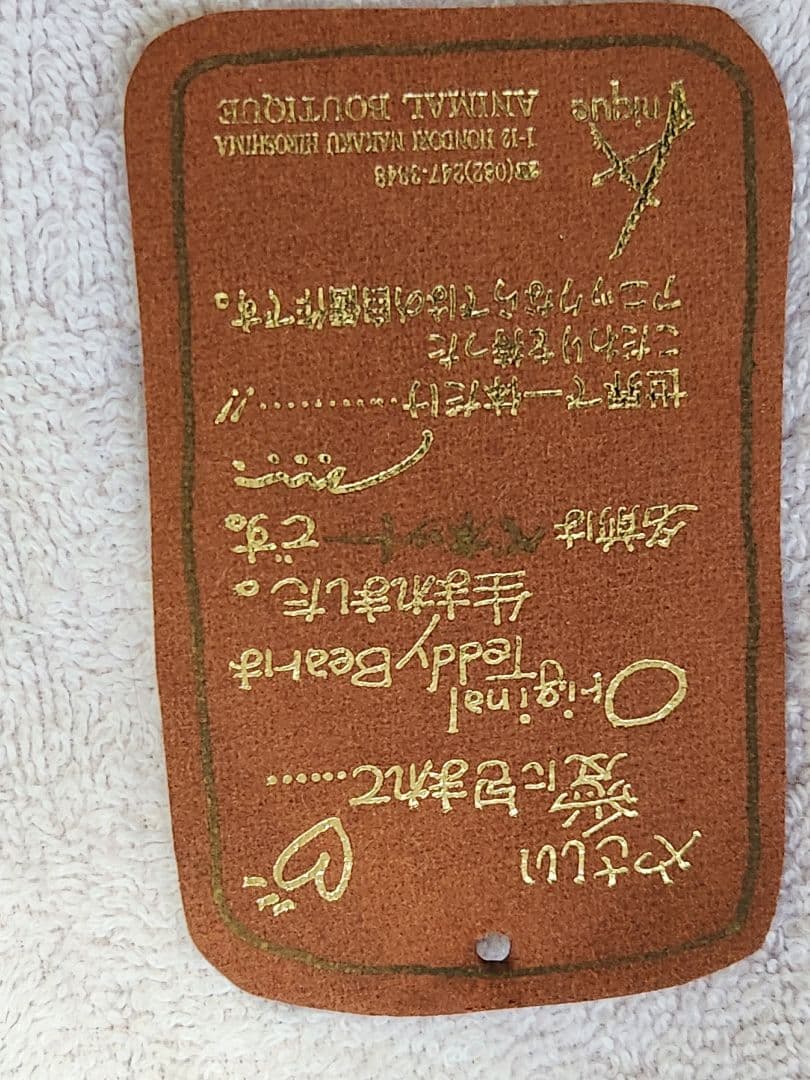 やさしい
愛に包まれて……
Original
Teddy Bearは
生まれました。
名前は です。
世界で一体だけ…………!!
こだわりを持った
アニックならではの自信作です。
Anique
ANIMAL BOUTIQUE
1-12 HONDORI NAKAKU HIROSHIMA
☎(082)247-3848